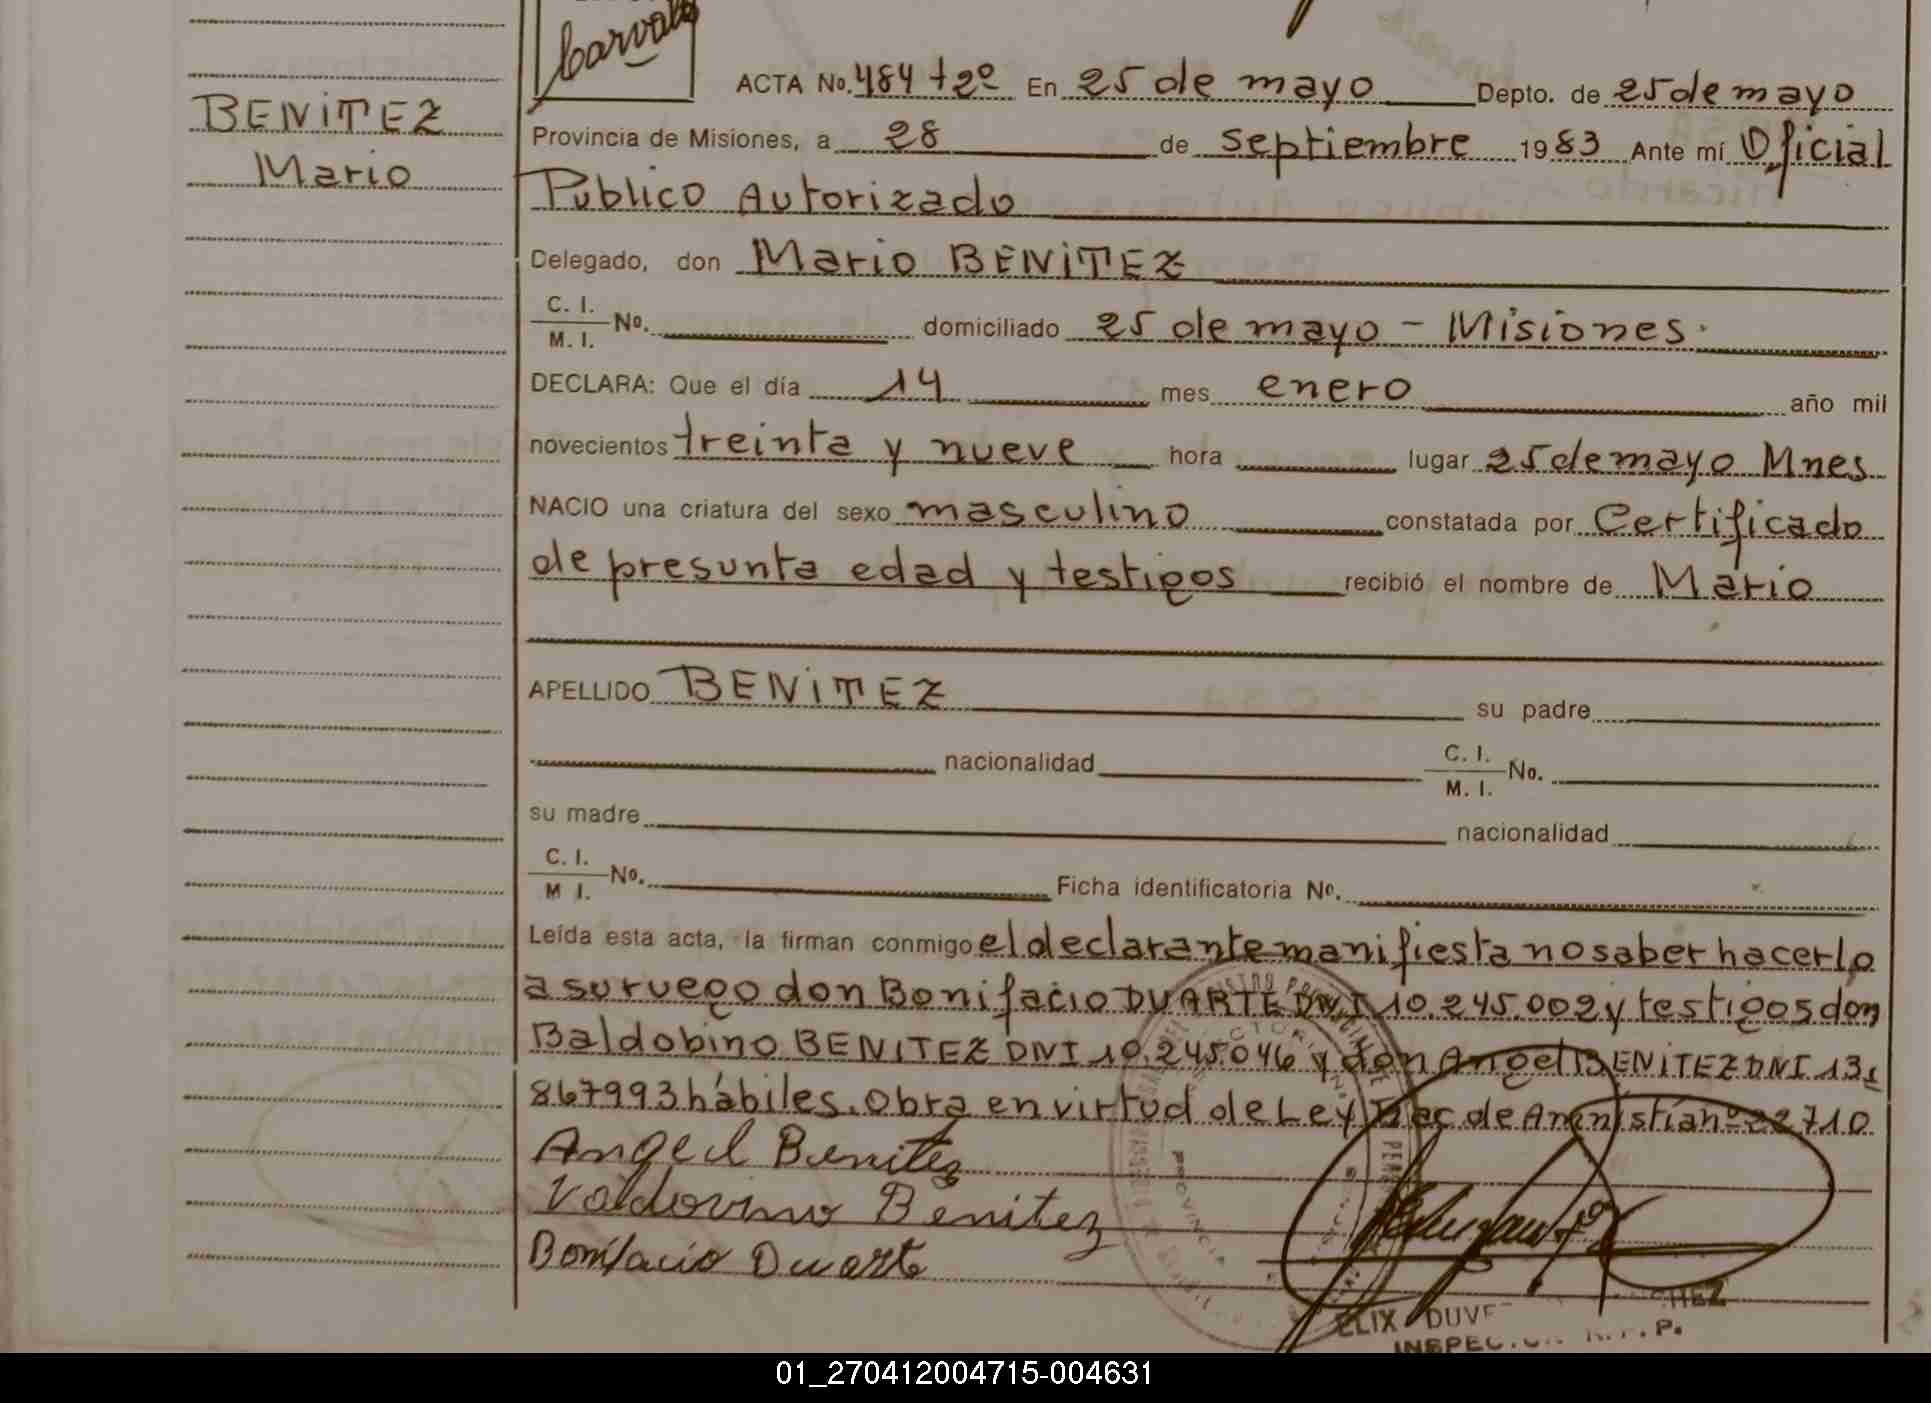 Carvalo
ACTA No. 484 t 2º En 25 de mayo Depto. de 25 de mayo
BENITEZ
Mario
Provincia de Misiones, a 28 de septiembre 1983 Ante mí Oficial
Público Autorizado
Delegado, don Mario BENITEZ
C. I.
M. I. No. domiciliado 25 de mayo - Misiones.
DECLARA: Que el día 14 mes enero año mil
novecientos treinta y nueve hora lugar 25 de mayo Mnes
NACIO una criatura del sexo masculino constatada por Certificado
de presunta edad y testigos recibió el nombre de Mario
APELLIDO BENITEZ su padre
nacionalidad C. I.
M. I. No.
su madre nacionalidad
C. I.
M I. No. Ficha identificatoria No.
Leída esta acta, la firman conmigo el declarante manifiesta no saber hacerlo
a su ruego don Bonifacio DUARTE DNI 10.245.002 y testigos don
Baldobino BENITEZ DNI 10.245.046 y don Angel BENITEZ DNI 13.
867993 hábiles. Obra en virtud de Ley Nac de Amnistía nº 22710
Angel Benitez
Valdovino Benitez
Bonifacio Duarte
INSPEC
01_270412004715-004631